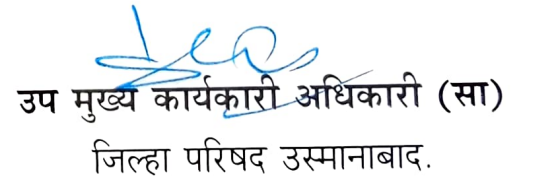 उप मुख्य कार्यकारी अधिकारी (सा)
जिल्हा परिषद उस्मानाबाद.